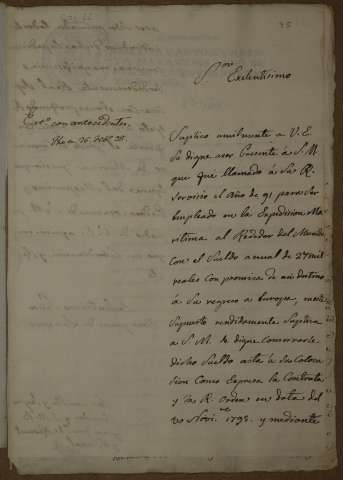 Sr. Exelentisimo
Estº. con antecedentes
Suplico umilmente a V. E.
Se digue aser Presente á S. M.
que Que llamado á Su R.
Servisio el Año de 91 para Ser
Empleado en la Espedision Ma
ritima al Rededor del Mundo
Con el Sueldo anual de 27 mil
reales con promesa de un destino
á Su regreso a Europa, en este
Supuesto rendidamente Suplica
a S. M. se digue conservarle
dicho Sueldo asta á Su Coloca
sion Como Espresa la Contrata
y la R. Orden en data del
20 Novi.e 1798. y mediante